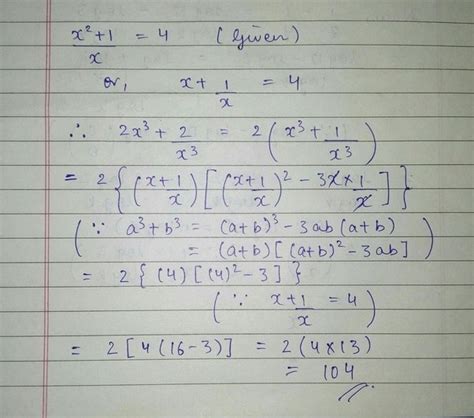 x² + 1 / x = 4 (Given)
or, x + 1/x = 4
∴ 2x³ + 2/x³ = 2 ( x³ + 1/x³ )
= 2 { (x + 1/x) [ (x + 1/x)² - 3x × 1/x ] }
( ∵ a³ + b³ = (a+b)³ - 3ab (a+b)
= (a+b) [ (a+b)² - 3ab ] )
= 2 { (4) [ (4)² - 3 ] }
( ∵ x + 1/x = 4 )
= 2 [ 4 (16 - 3) ] = 2 ( 4 × 13 )
= 104